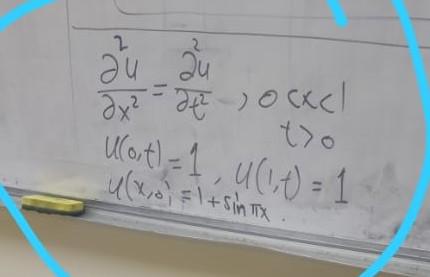 ∂²u/∂x² = ∂²u/∂t² , 0<x<1
t>0
u(0,t)=1 , u(1,t)=1
u(x,0)=1+sin πx .